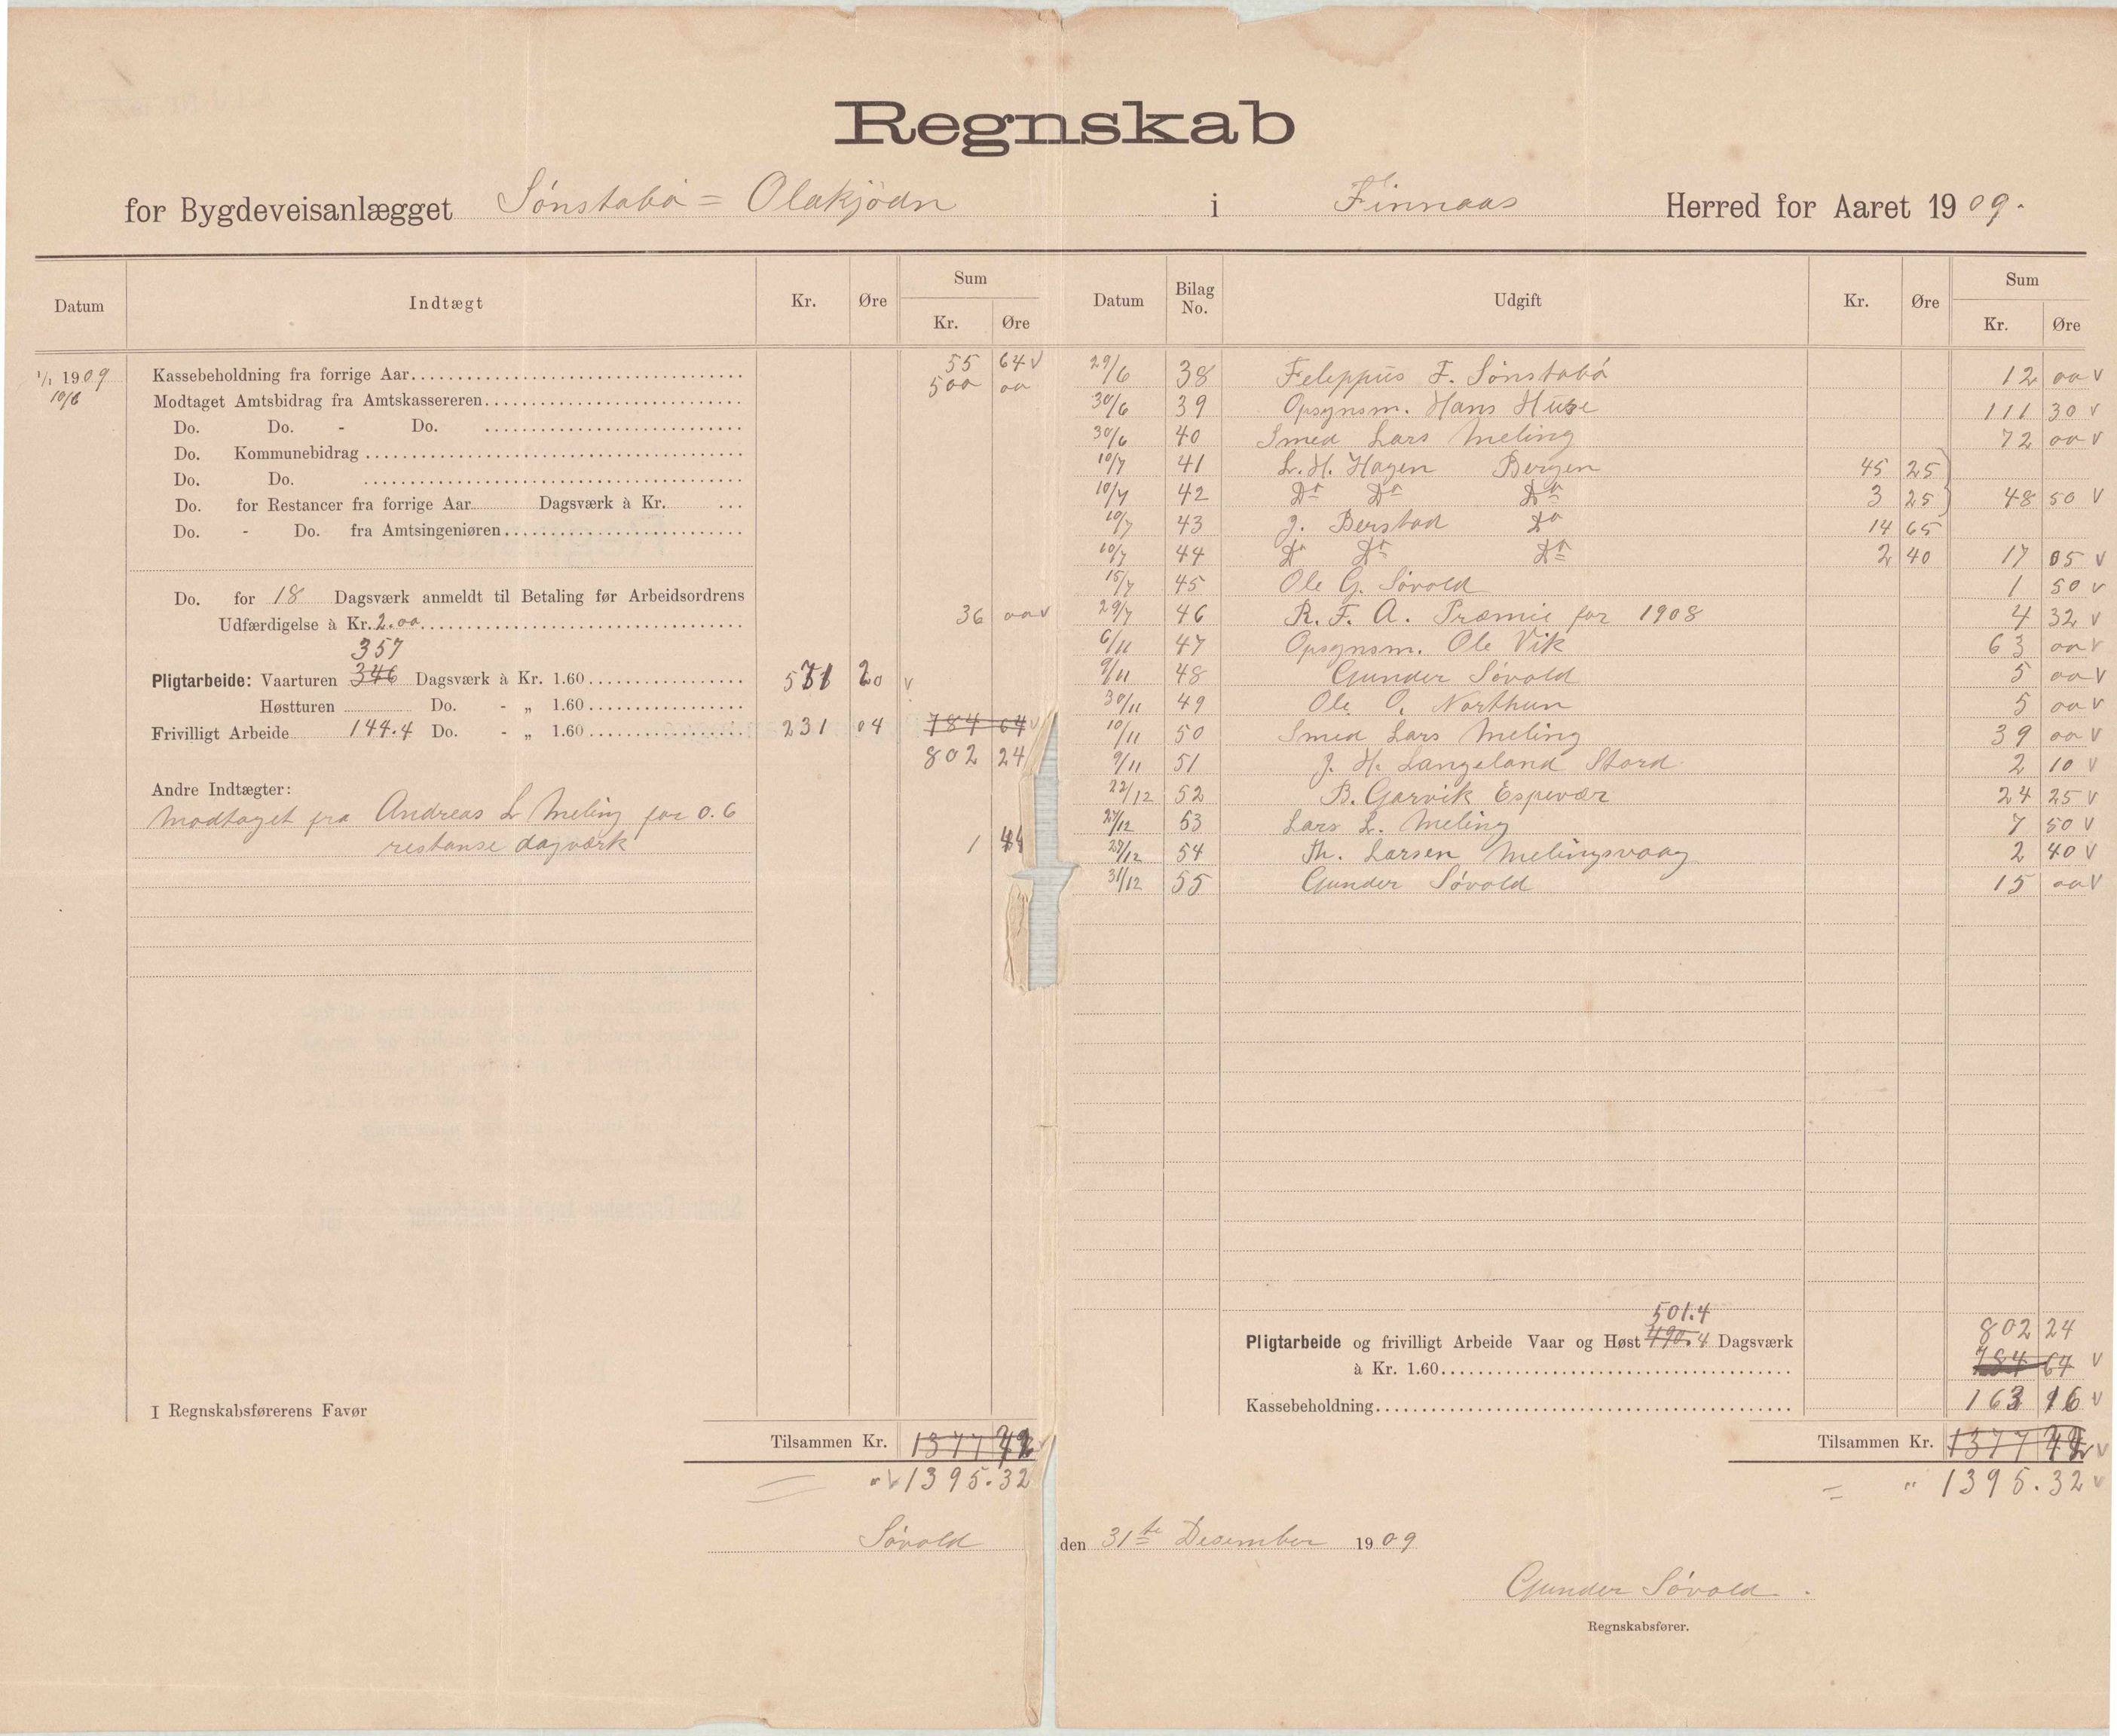 Regnskab
for Bygdeveisanlægget Sønstabø = Olakjødn i Finnaas Herred for Aaret 1909.
Datum Indtægt Kr. Øre Sum Kr. Øre
1/1 1909 Kassebeholdning fra forrige Aar 55 64 v
10/6 Modtaget Amtsbidrag fra Amtskassereren 500 00
Do. Do. - Do.
Do. Kommunebidrag
Do. Do.
Do. for Restancer fra forrige Aar Dagsværk à Kr. ...
Do. - Do. fra Amtsingeniøren
Do. for 18 Dagsværk anmeldt til Betaling før Arbeidsordrens
Udfærdigelse à Kr. 2.00 36 00 v
357
Pligtarbeide: Vaarturen 346 Dagsværk à Kr. 1.60 571 20 v
Høstturen Do. - „ 1.60
Frivilligt Arbeide 144.4 Do. - „ 1.60 231 04 784 64 v
802 24
Andre Indtægter:
Modtaget fra Andreas L Meling for 0.6
restanse dagværk 1 44
I Regnskabsførerens Favør
Tilsammen Kr. 1377 72 v
= " v 1395.32
Datum Bilag No. Udgift Kr. Øre Sum Kr. Øre
29/6 38 Feleppus F. Sønstabø 12 00 v
30/6 39 Opsynsm. Hans Huse 111 30 v
30/6 40 Smed Lars Meling 72 00 v
10/7 41 L. H. Hagen Bergen 45 25
10/7 42 Do Do Do 3 25 48 50 v
10/7 43 J. Berstad Do 14 65
10/7 44 Do Do Do 2 40 17 05 v
15/7 45 Ole G. Søvold 1 50 v
29/7 46 R. F. A. Præmie for 1908 4 32 v
6/11 47 Opsynsm. Ole Vik 63 00 v
9/11 48 Gunder Søvold 5 00 v
30/11 49 Ole O. Northun 5 00 v
10/11 50 Smed Lars Meling 39 00 v
9/11 51 J. H. Langeland Stord 2 10 v
22/12 52 B. Garvik Espevær 24 25 v
27/12 53 Lars L. Meling 7 50 v
29/12 54 Th. Larsen Melingsvaag 2 40 v
31/12 55 Gunder Søvold 15 00 v
501.4
Pligtarbeide og frivilligt Arbeide Vaar og Høst 490.4 Dagsværk 802 24
à Kr. 1.60 784 64 v
Kassebeholdning 163 16 v
Tilsammen Kr. 1377 72 v
= " 1395.32 v
Søvold den 31te Desember 1909
Gunder Søvold.
Regnskabsfører.